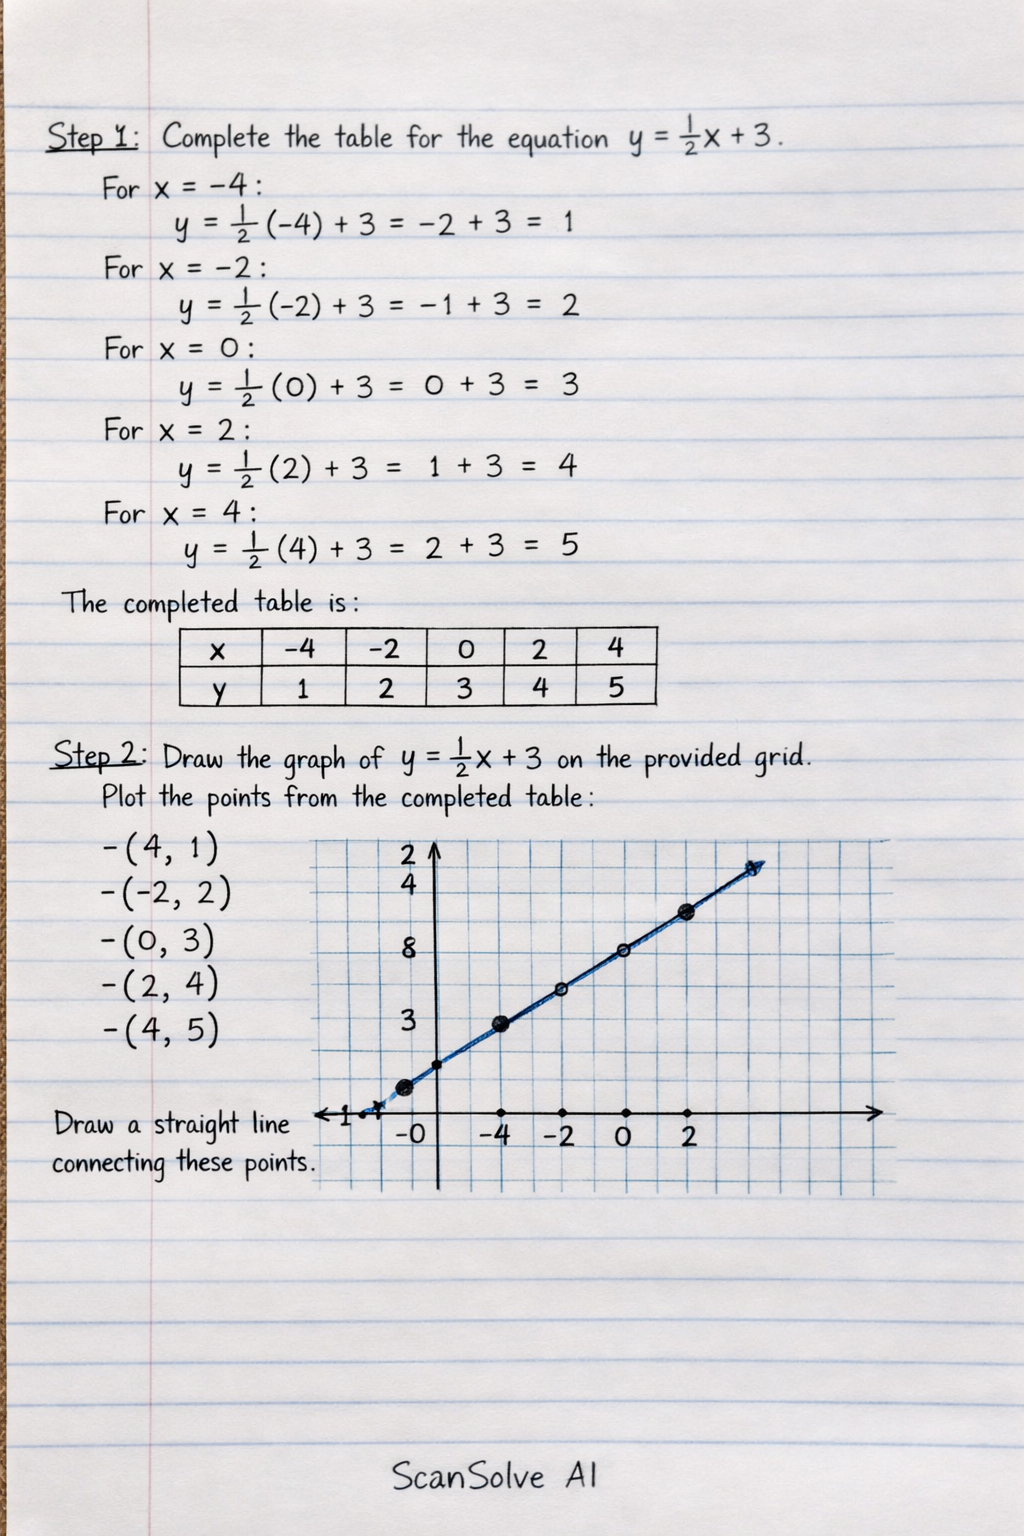 Step 1: Complete the table for the equation y = 1/2 x + 3.
For x = -4:
y = 1/2 (-4) + 3 = -2 + 3 = 1
For x = -2:
y = 1/2 (-2) + 3 = -1 + 3 = 2
For x = 0:
y = 1/2 (0) + 3 = 0 + 3 = 3
For x = 2:
y = 1/2 (2) + 3 = 1 + 3 = 4
For x = 4:
y = 1/2 (4) + 3 = 2 + 3 = 5
The completed table is:
x -4 -2 0 2 4
y 1 2 3 4 5
Step 2: Draw the graph of y = 1/2 x + 3 on the provided grid.
Plot the points from the completed table:
-(4, 1)
-(-2, 2)
-(0, 3)
-(2, 4)
-(4, 5)
Draw a straight line
connecting these points.
2
4
8
3
1
-0 -4 -2 0 2
ScanSolve AI